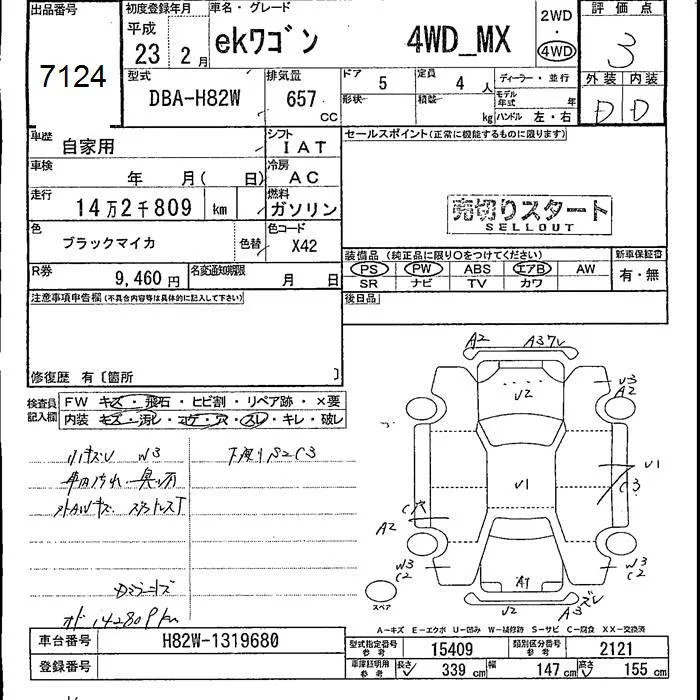 出品番号
7124
初度登録年月
平成
23 2 月
車名・グレード
ekワゴン 4WD_MX
2WD
・
4WD
評価点
3
型式
DBA-H82W
排気量
657
CC
ドア 5
定員 4 人
形状
積載 kg
ディーラー・並行
モデル年式 年
ハンドル 左・右
外装 内装
D D
車歴
自家用
シフト
IAT
セールスポイント(正常に機能するものに限ります)
車検
年 月( 日)
冷房
AC
走行
14万2千809 km
燃料
ガソリン
売切りスタート
SELLOUT
色
ブラックマイカ
色替
色コード
X42
装備品(純正品に限り○をつけてください)
新車保証書
PS PW ABS エアB AW
有・無
SR ナビ TV カワ
R券
9,460 円
名変通知期限
月 日
後日品
注意事項申告欄(不具合内容等は具体的に記入して下さい)
修復歴 有〔箇所 〕
検査員
記入欄
FW キズ・飛石・ヒビ割・リペア跡・×要
内装 キズ・汚レ・コゲ・穴・スレ・キレ・破レ
小キズU W3
下廻りS2C3
A2 A3
U2
U3
A2
U1
U1
C3
C穴
A2
W3
C2
W3
C2
A1
U2 A3ズレ
スペア
A-キズ E-エクボ U-凹み W-補修跡 S-サビ C-腐食 XX-交換済
車台番号 H82W-1319680
登録番号
型式指定番号
参考
15409
類別区分番号
参考
2121
車庫証明用
参考
長さ 339 cm
幅 147 cm
高さ 155 cm